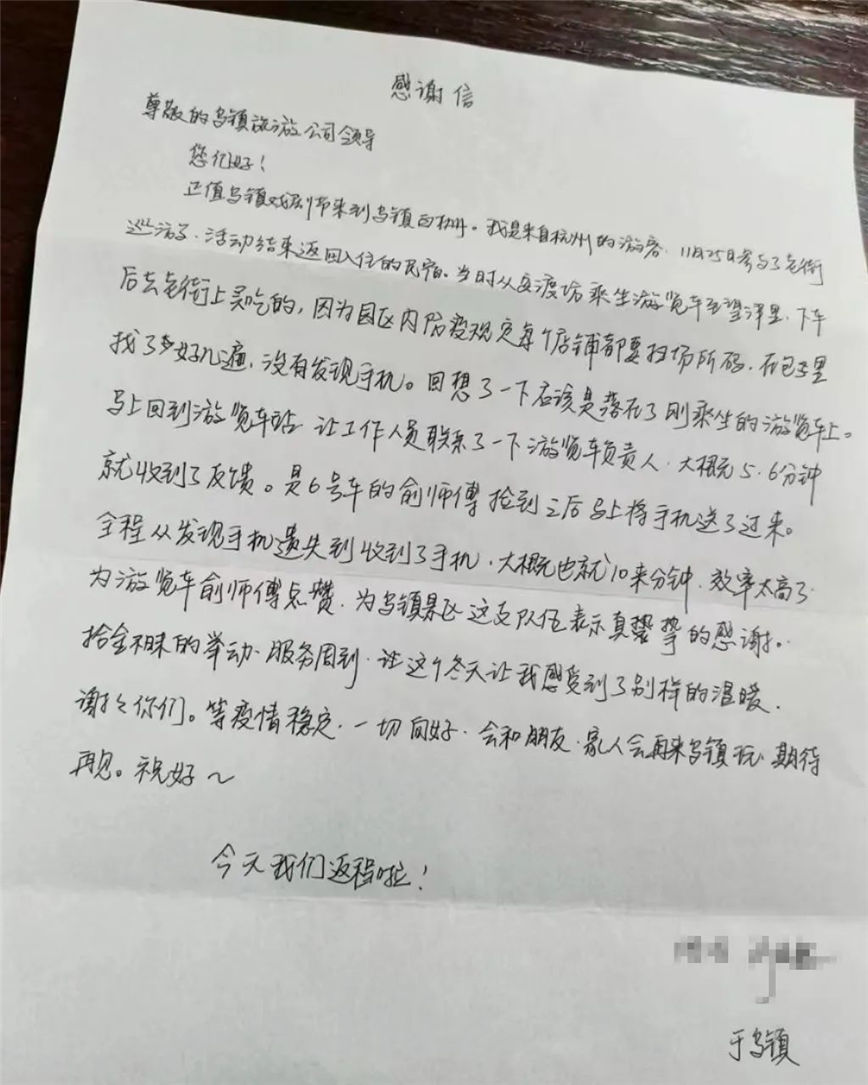 感谢信
尊敬的乌镇旅游公司领导
您们好！
正值乌镇戏剧节来到乌镇。我是来自杭州的游客，11月25日参与了走街
巡游了，活动结束返回入住的民宿。当时从安渡坊乘坐游览车至望津里，下车
后去走街上买吃的，因为园区内防疫规定每个店铺都要扫场所码，在包包里
找了好几遍，没有发现手机。回想了一下应该是落在了刚乘坐的游览车上。
马上回到游览车站，让工作人员联系了一下游览车负责人，大概元5、6分钟
就收到了反馈。是6号车的俞师傅捡到之后马上将手机送了过来。
全程从发现手机遗失到收到了手机，大概元也就10来分钟，效率太高了
为游览车俞师傅点赞，为乌镇景区这支队伍表示真挚的感谢。
拾金不昧的举动，服务周到，让这个冬天让我感受到了别样的温暖，
谢谢你们。等疫情稳定，一切向好，会和朋友，家人会再来乌镇玩，期待
再见。祝好～
今天我们返程啦！
于乌镇